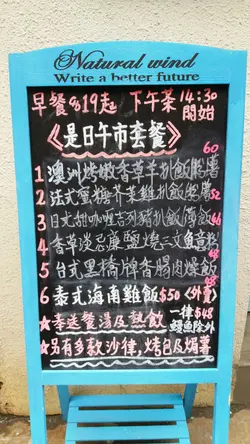 Natural wind
Write a better future
早餐8:19起 下午茶14:30
開始
《是日午市套餐》
60
1 澳洲烤嫩香草羊扒飯/薯
2 法式蜜糖芥菜雞扒飯/薯52
3 日式甜咖喱吉列豬扒飯/薯46
4 香草淡忌廉鹽燒三文魚意粉
48
5 台式黑橋牌香腸肉燥飯
48
6 泰式海南雞飯$50〈外賣〉
★奉送餐湯及熱飲 一律$48
鰻魚除外
★另有多款沙律,烤包及焗薯